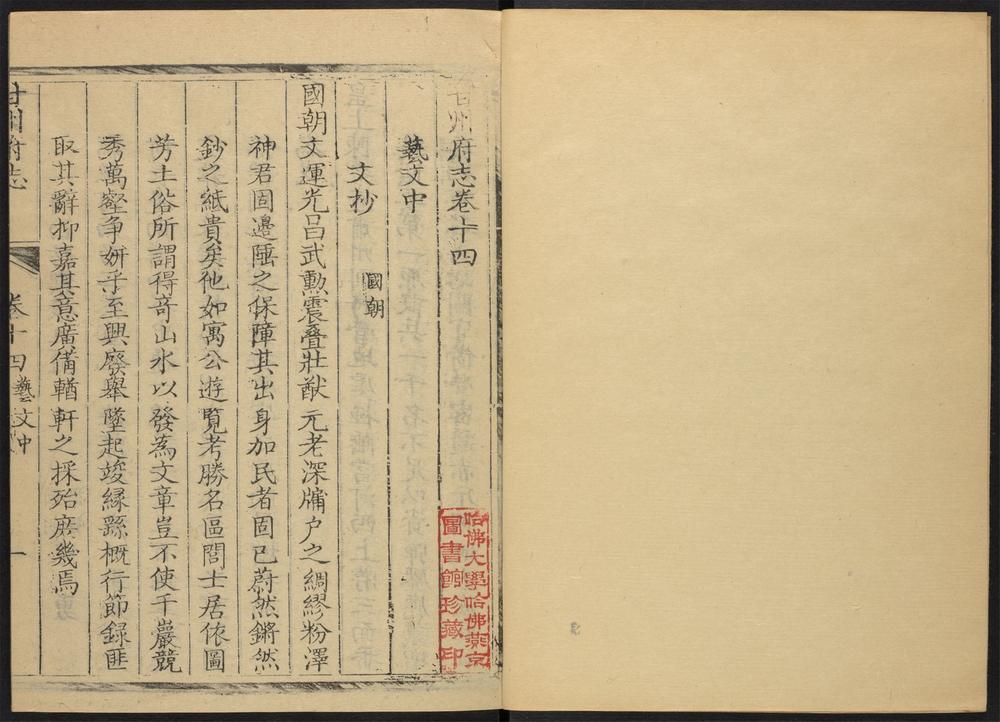 甘州府志卷十四
藝文中
文抄
國朝
國朝文運光昌武勲震疊壯猷元老深牖户之綢繆粉澤
神君固邊陲之保障其出身加民者固已蔚然鏘然
鈔之紙貴矣他如寓公遊覧考勝名區閭士居依圖
芳土俗所謂得竒山水以發為文章豈不使千巖競
秀萬壑争妍乎至興廢舉墜起竣縁繇概行節録匪
取其辭抑嘉其意廣備輶軒之採殆庶幾焉
甘州府志
卷十四
藝文中
一
哈佛大學哈佛燕京
圖書館珍藏印